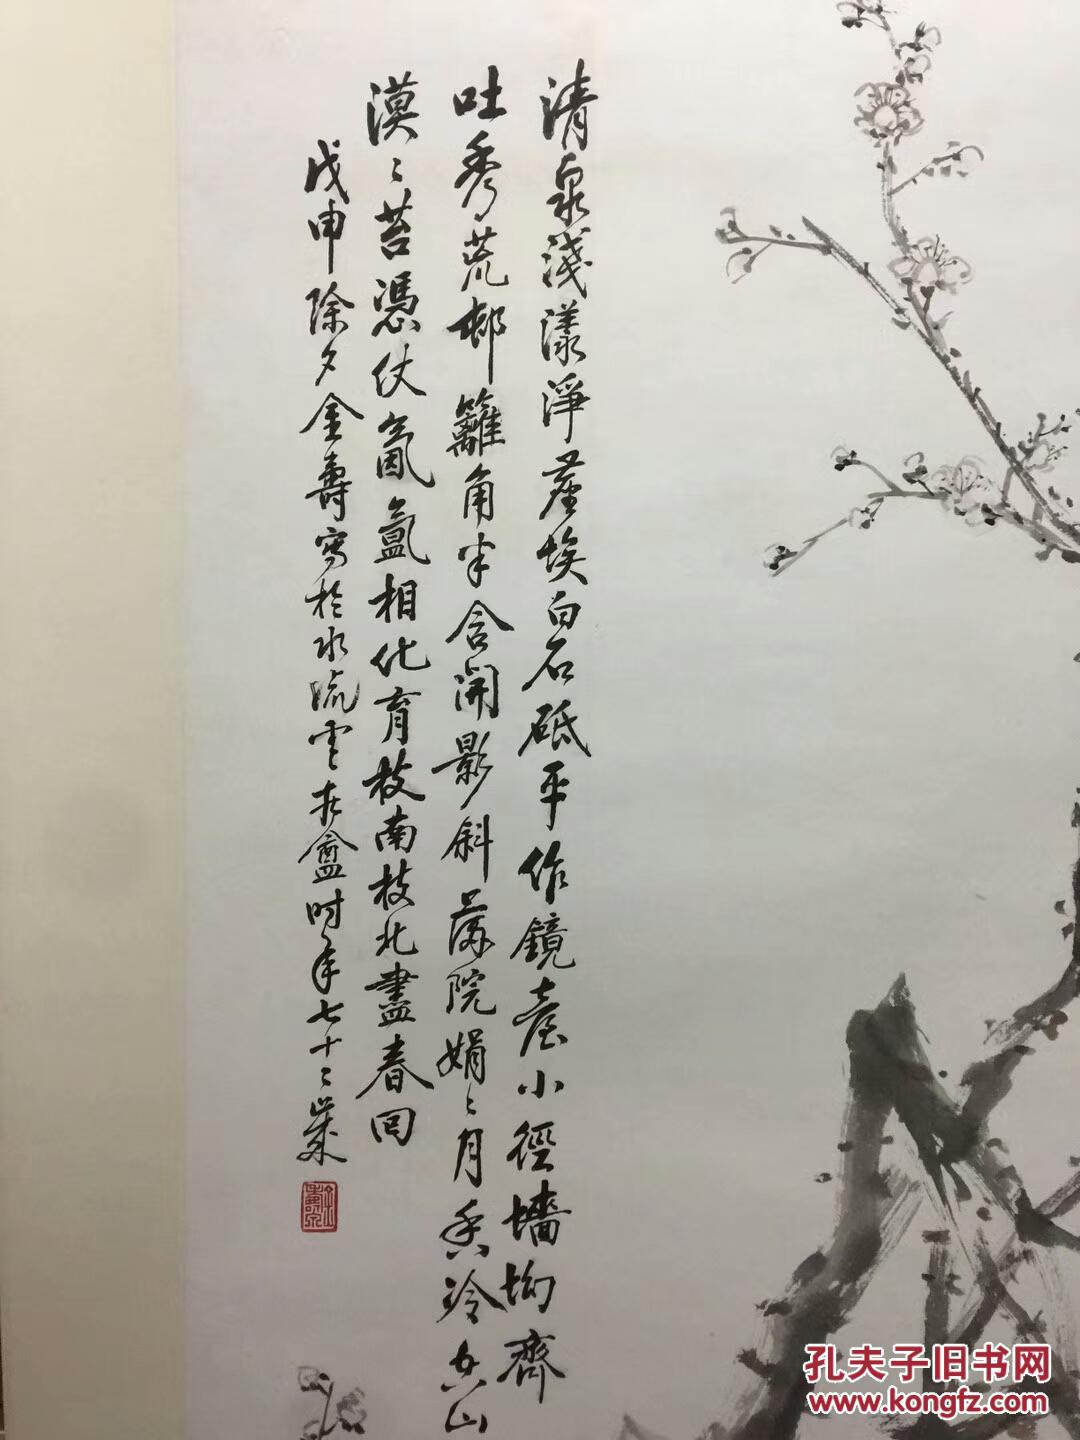 清泉淺漾淨塵埃白石砥平作鏡臺小徑墻坳齊
吐秀荒邨籬角半含開影斜落院娟〻月香冷空山
漠〻苔憑仗氤氳相化育枝南枝北盡春回
戊申除夕金壽寫於水流雲在盦時年七十二歲
孔夫子旧书网
www.kongfz.com